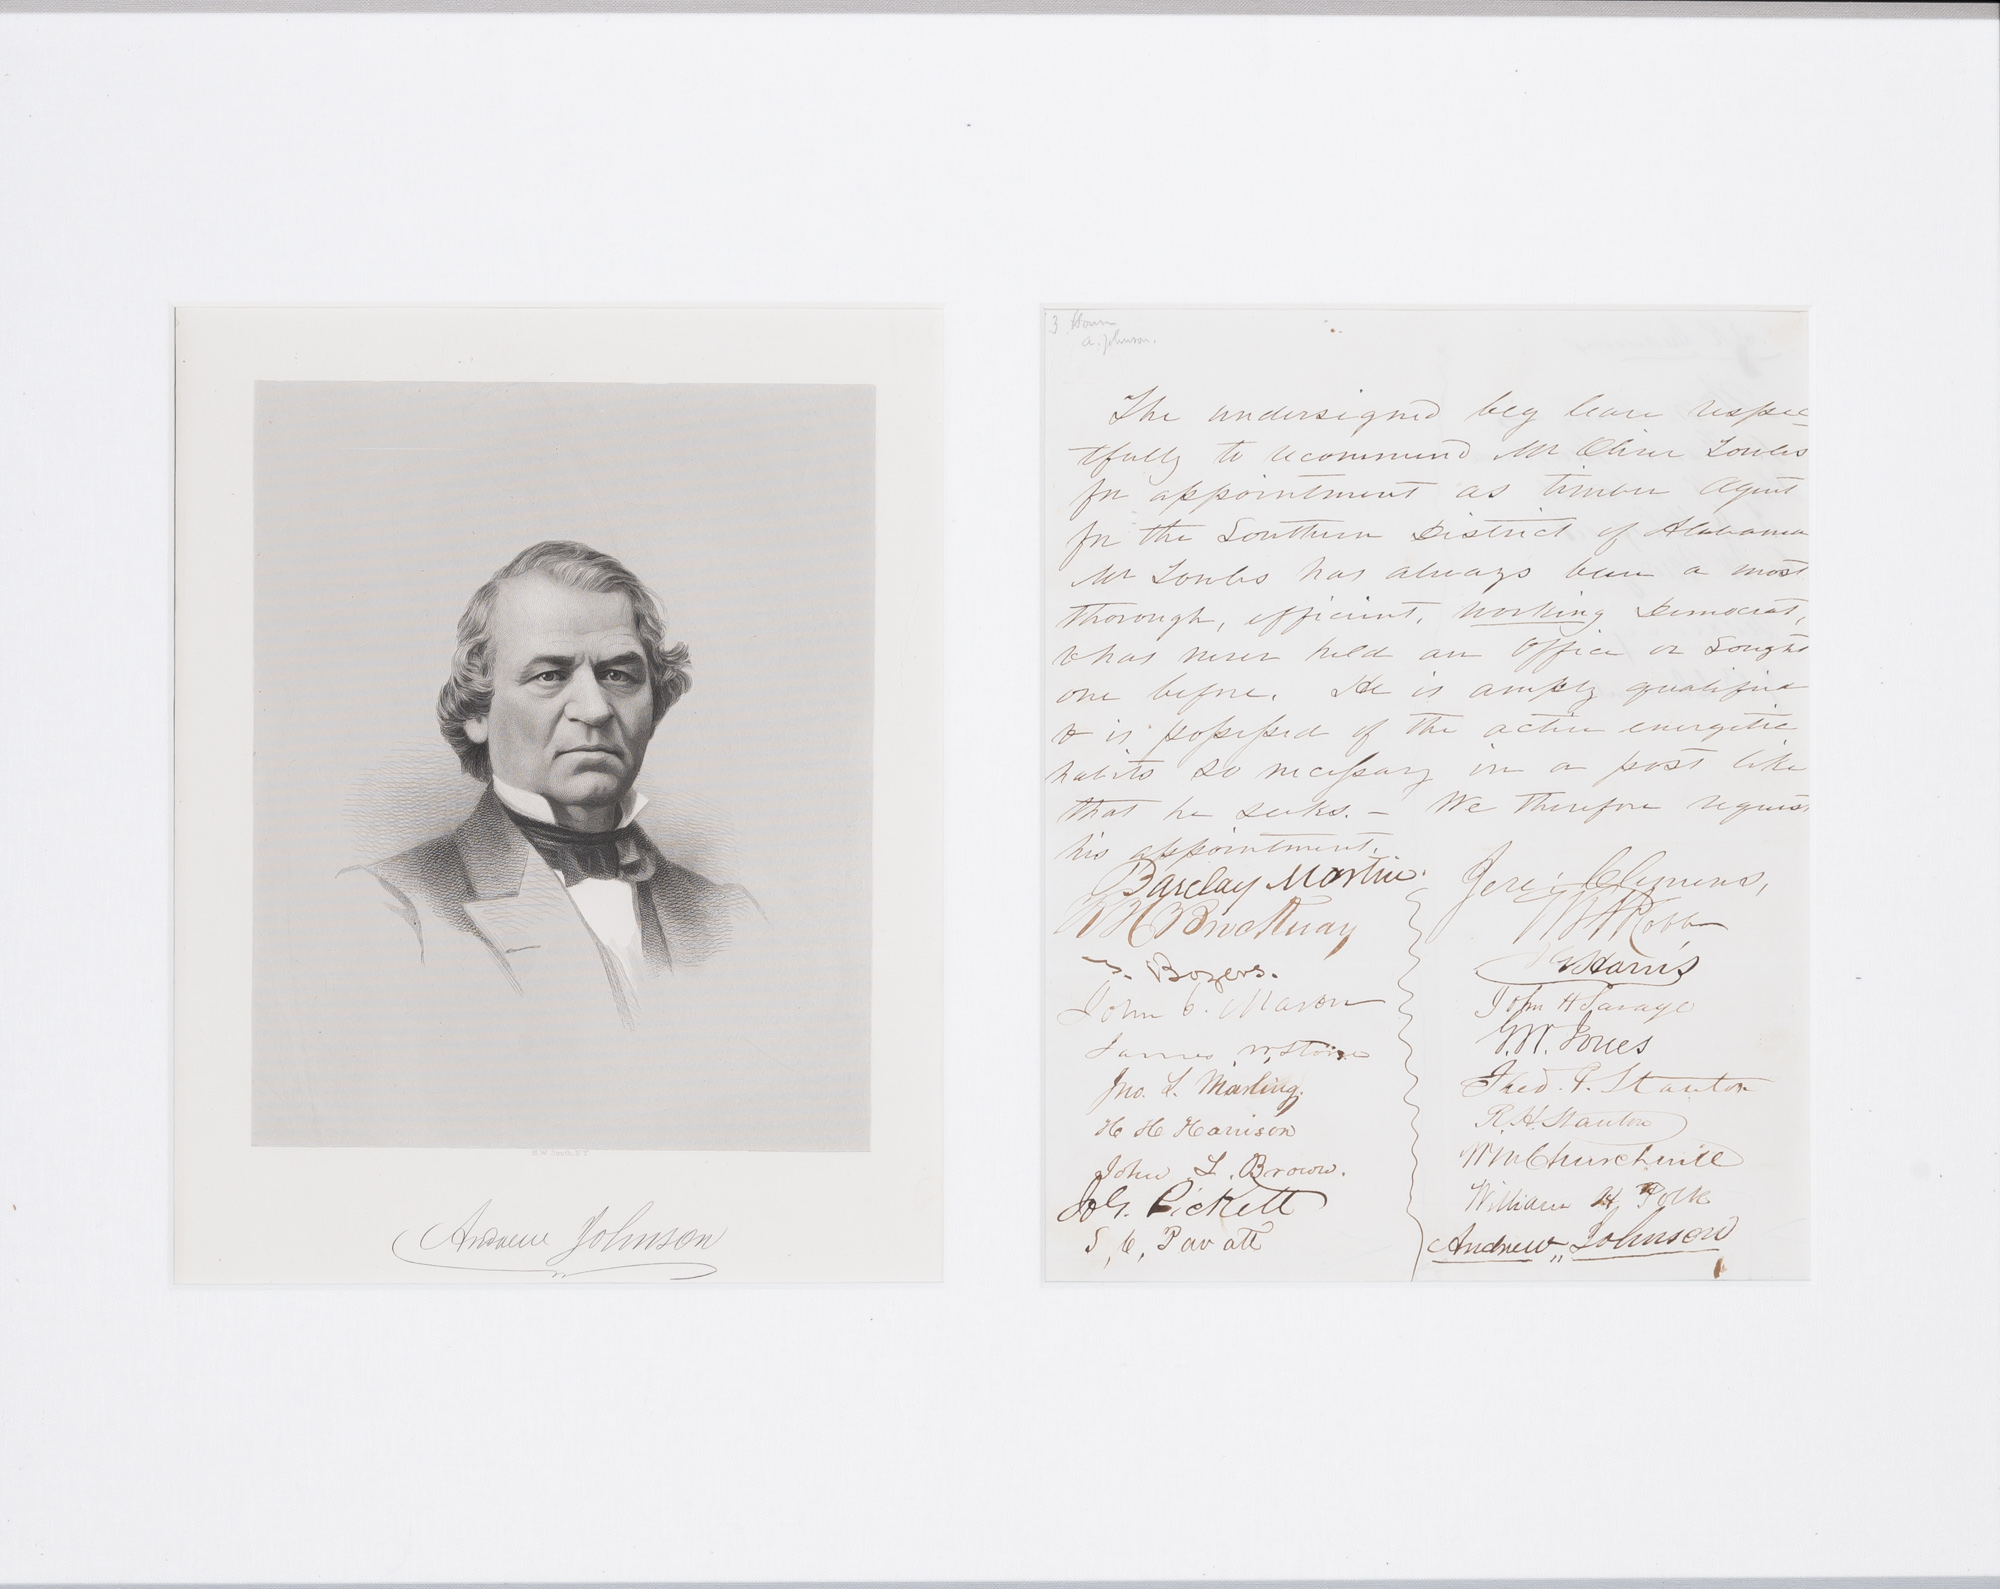 Andrew Johnson
3
A. Johnson.
The undersigned beg leave respec=
tfully to recommend Mr Oliver Towles
for appointment as timber Agent
for the Southern District of Alabama
Mr Towles has always been a most
thorough, efficient, working Democrat,
& has never held an office or sought
one before. He is amply qualified
& is possessed of the active energetic
habits so necessary in a post like
that he seeks. – We therefore request
his appointment.
Barclay Martin.
Brockway
Bozers.
John C. Mason
James Stone
Jno. L. Marling.
H H Harrison
John L. Brown.
Jos. G. Pickett
S, C, Pavatt
Jere: Clemens,
Robb
Harris
John H Savage
G. W. Jones
Fred. P. Stanton
R. H. Stanton
Wm Churchwell
William H Polk
Andrew,, Johnson